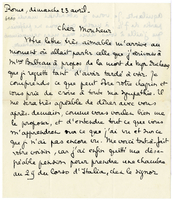 Rome, dimanche 23 avril.
Cher Monsieur
Votre lettre très aimable m'arrive au
moment où allait partir celle que j'écrivais à
Mme Bulteau à propos de la mort de
que je reçois tant d'avoir tardé à voir. Je
comprends ce que peut être votre chagrin et
vous prie de croire à tous ma sympathie. Il
me sera très agréable de dîner avec vous
après-demain, comme vous voulez bien me
le proposer, et d'entendre tout ce que vous
m'apprendrez sur ce que j'ai vu et sur ce
que je n'ai pas encore vu. Me voici tout à fait
votre voisin, car j'ai enfin quitté ma
pension pour prendre une chambre
au 29 du Corso d'Italia, chez le signor